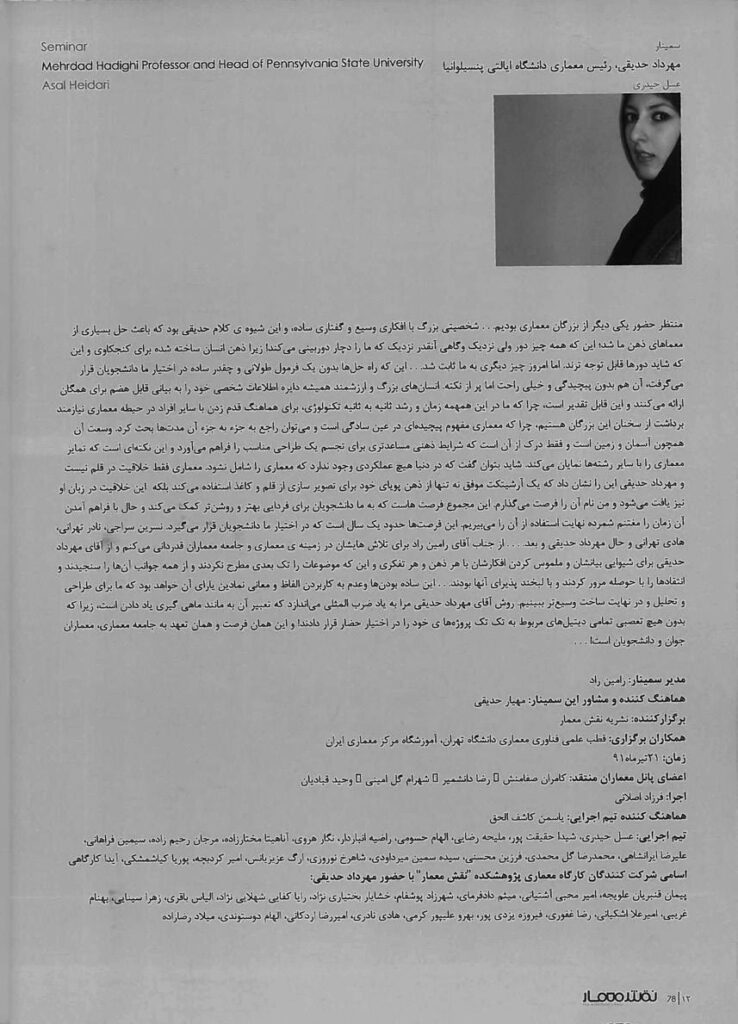 Seminar
Mehrdad Hadighi Professor and Head of Pennsylvania State University
Asal Heidari
سمینار
مهرداد حدیقی، رئیس معماری دانشگاه ایالتی پنسیلوانیا
عسل حیدری
منتظر حضور یکی دیگر از بزرگان معماری بودیم. . . شخصیتی بزرگ با افکاری وسیع و گفتاری ساده، و این شیوه ی کلام حدیقی بود که باعث حل بسیاری از
معماهای ذهن ما شد؛ این که همه چیز دور ولی نزدیک وگاهی آنقدر نزدیک که ما را دچار دوربینی می‌کند! زیرا ذهن انسان ساخته شده برای کنجکاوی و این
که شاید دورها قابل توجه ترند. اما امروز چیز دیگری به ما ثابت شد. . . این که راه حل‌ها بدون یک فرمول طولانی و چقدر ساده در اختیار ما دانشجویان قرار
می‌گرفت، آن هم بدون پیچیدگی و خیلی راحت اما پر از نکته. انسان‌های بزرگ و ارزشمند همیشه دایره اطلاعات شخصی خود را به بیانی قابل هضم برای همگان
ارائه می‌کنند و این قابل تقدیر است، چرا که ما در این همهمه زمان و رشد ثانیه به ثانیه تکنولوژی، برای هماهنگ قدم زدن با سایر افراد در حیطه معماری نیازمند
برداشت از سخنان این بزرگان هستیم، چرا که معماری مفهوم پیچیده‌ای در عین سادگی است و می‌توان راجع به جزء به جزء آن مدت‌ها بحث کرد. وسعت آن
همچون آسمان و زمین است و فقط درک از آن است که شرایط ذهنی مساعدتری برای تجسم یک طراحی مناسب را فراهم می‌آورد و این نکته‌ای است که تمایز
معماری را با سایر رشته‌ها نمایان می‌کند. شاید بتوان گفت که در دنیا هیچ عملکردی وجود ندارد که معماری را شامل نشود. معماری فقط خلاقیت در قلم نیست
و مهرداد حدیقی این را نشان داد که یک آرشیتکت موفق نه تنها از ذهن پویای خود برای تصویر سازی از قلم و کاغذ استفاده می‌کند بلکه این خلاقیت در زبان او
نیز یافت می‌شود و من نام آن را فرصت می‌گذارم. این مجموع فرصت هاست که به ما دانشجویان برای فردایی بهتر و روشن‌تر کمک می‌کند و حال با فراهم آمدن
آن زمان را مغتنم شمرده نهایت استفاده از آن را می‌بریم. این فرصت‌ها حدود یک سال است که در اختیار ما دانشجویان قرار می‌گیرد. نسرین سراجی، نادر تهرانی،
هادی تهرانی و حال مهرداد حدیقی و بعد. . . از جناب آقای رامین راد برای تلاش هایشان در زمینه ی معماری و جامعه معماران قدردانی می‌کنم و از آقای مهرداد
حدیقی برای شیوایی بیانشان و ملموس کردن افکارشان با هر ذهن و هر تفکری و این که موضوعات را تک بعدی مطرح نکردند و از همه جوانب آن‌ها را سنجیدند و
انتقادها را با حوصله مرور کردند و با لبخند پذیرای آنها بودند. . . این ساده بودن‌ها وعدم به کاربردن الفاظ و معانی نمادین یارای آن خواهد بود که ما برای طراحی
و تحلیل و در نهایت ساخت وسیع‌تر ببینیم. روش آقای مهرداد حدیقی مرا به یاد ضرب المثلی می‌اندازد که تعبیر آن به مانند ماهی گیری یاد دادن است، زیرا که
بدون هیچ تعصبی تمامی دیتیل‌های مربوط به تک تک پروژه‌ها ی خود را در اختیار حضار قرار دادند! و این همان فرصت و همان تعهد به جامعه معماری، معماران
جوان و دانشجویان است! . . .
مدیر سمینار: رامین راد
هماهنگ کننده و مشاور این سمینار: مهیار حدیقی
برگزارکننده: نشریه نقش معمار
همکاران برگزاری: قطب علمی فناوری معماری دانشگاه تهران، آموزشگاه مرکز معماری ایران
زمان: ۲۱تیرماه۹۱
اعضای پانل معماران منتقد: کامران صفامنش ▯ رضا دانشمیر ▯ شهرام گل امینی ▯ وحید قبادیان
اجرا: فرزاد اصلانی
هماهنگ کننده تیم اجرایی: یاسمن کاشف الحق
تیم اجرایی: عسل حیدری، شیدا حقیقت پور، ملیحه رضایی، الهام حسومی، راضیه انباردار، نگار هروی، آناهیتا مختارزاده، مرجان رحیم زاده، سیمین فراهانی،
علیرضا ایرانشاهی، محمدرضا گل محمدی، فرزین محسنی، سیده سمین میرداودی، شاهرخ نوروزی، ارگ عزیزیانس، امیر کردبچه، پوریا کیاشمشکی، آیدا کارگاهی
اسامی شرکت کنندگان کارگاه معماری پژوهشکده "نقش معمار" با حضور مهرداد حدیقی:
پیمان قنبریان علویجه، امیر محبی آشتیانی، میثم دادفرمای، شهرزاد پوشفام، خشایار بختیاری نژاد، رایا کفایی شهلایی نژاد، الیاس باقری، زهرا سینایی، بهنام
غریبی، امیرعلا اشکیانی، رضا غفوری، فیروزه یزدی پور، بهرو علیپور کرمی، هادی نادری، امیررضا اردکانی، الهام دوستوندی، میلاد رضازاده
نقش معمار 78|۱۲